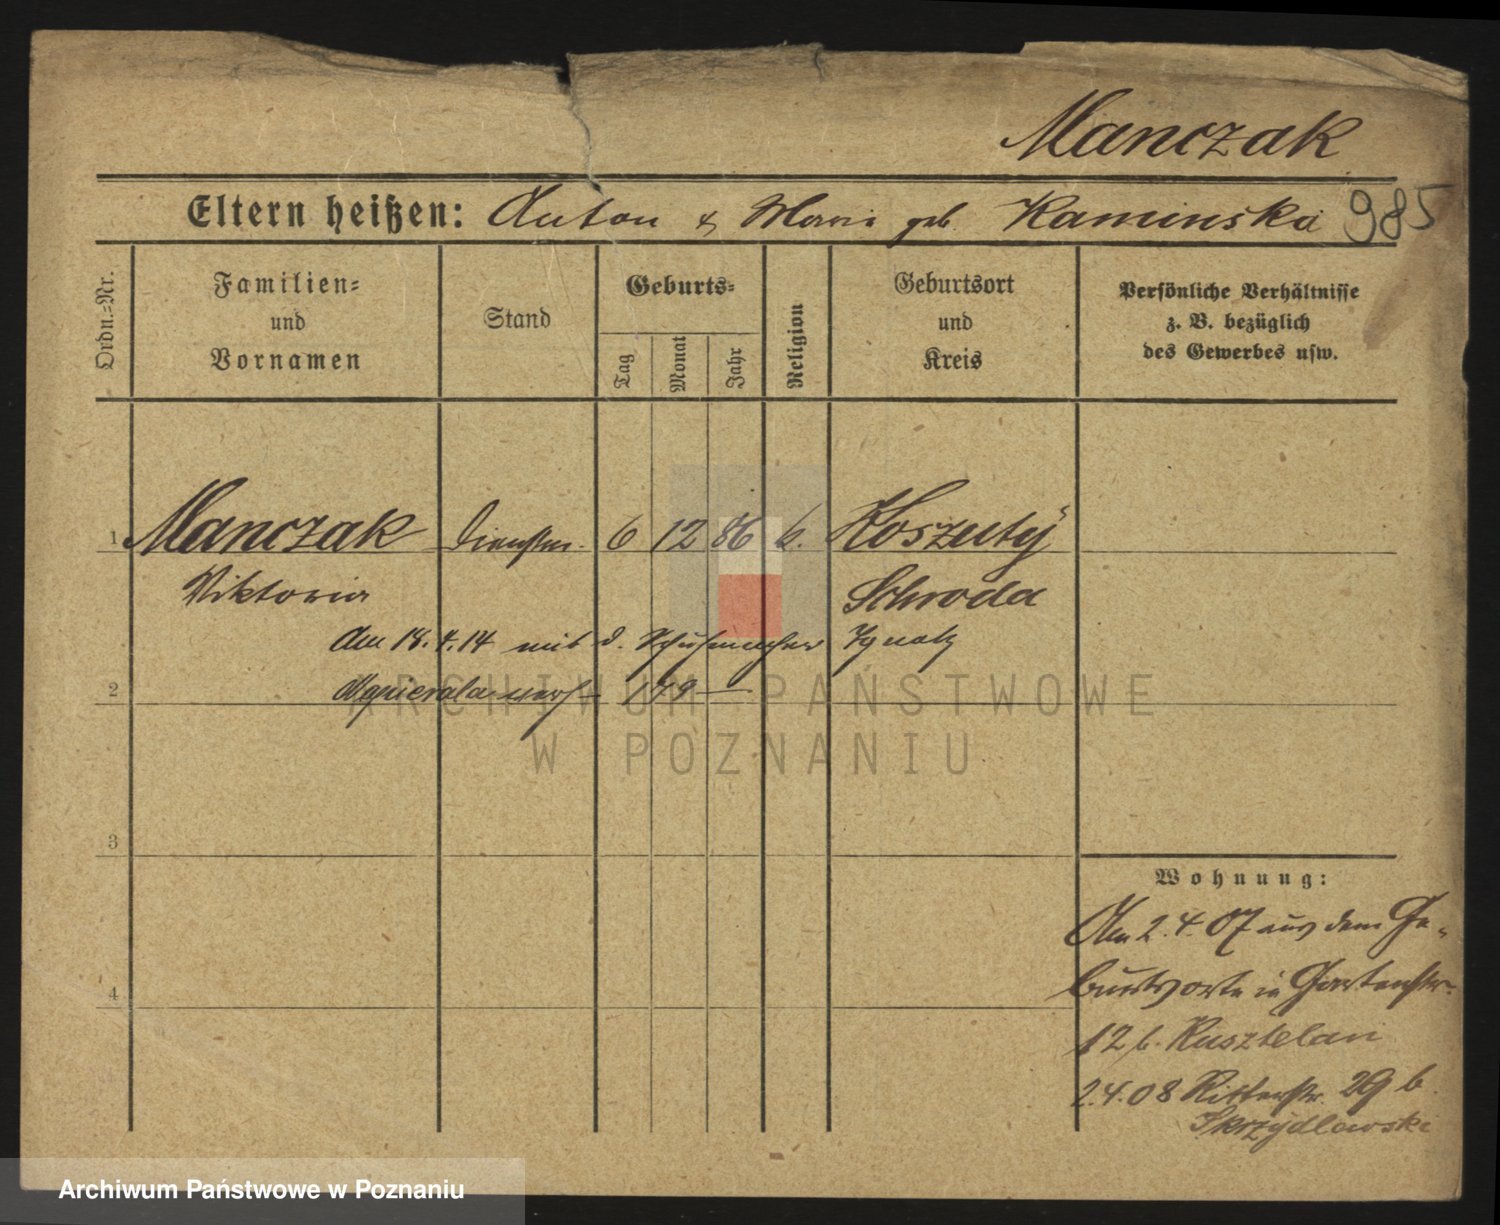 Manczak
Eltern heißen: Anton & Maria geb. Kaminska 985
Ordn.-Nr.
Familien-
und
Vornamen
Stand
Geburts-
Tag
Monat
Jahr
Religion
Geburtsort
und
Kreis
Persönliche Verhältnisse
z. B. bezüglich
des Gewerbes usw.
1 Manczak Dienstm. 6 12 86 k. Koszuty
Viktoria Schroda
Am 18.4.14 mit d. Schuhmacher Ignatz
2 verh 179
ARCHIWUM PAŃSTWOWE
W POZNANIU
3
Wohnung:
Am 2.4.07 aus dem Ge-
burtsorte in Gartenstr.
4
12 b. Kusztelan
2.4.08 Ritterstr. 29 b
Skrzydlewski
Archiwum Państwowe w Poznaniu